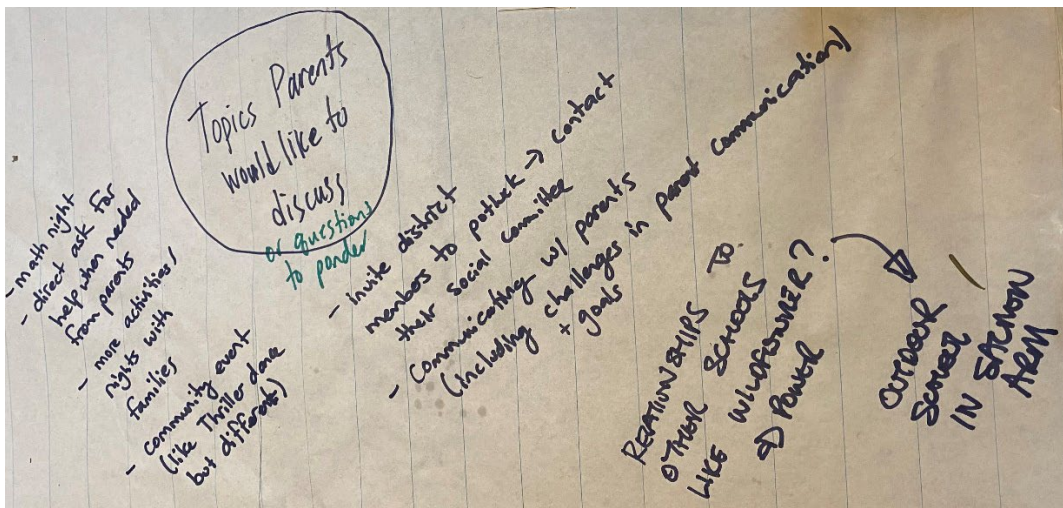 Topics Parents
would like to
discuss
or questions
to ponder
- math night
- direct ask for
help when needed
from parents
- more activities/
nights with
families
- community event
(like Thriller dance
but different)
- invite district
members to potluck → contact
their social committee
- Communicating w/ parents
(including challenges in parent communication)
+ goals
RELATIONSHIPS TO
OTHER SCHOOLS
LIKE WILDFLOWER?
POWER
OUTDOOR
SCHOOL
IN SALMON
ARM